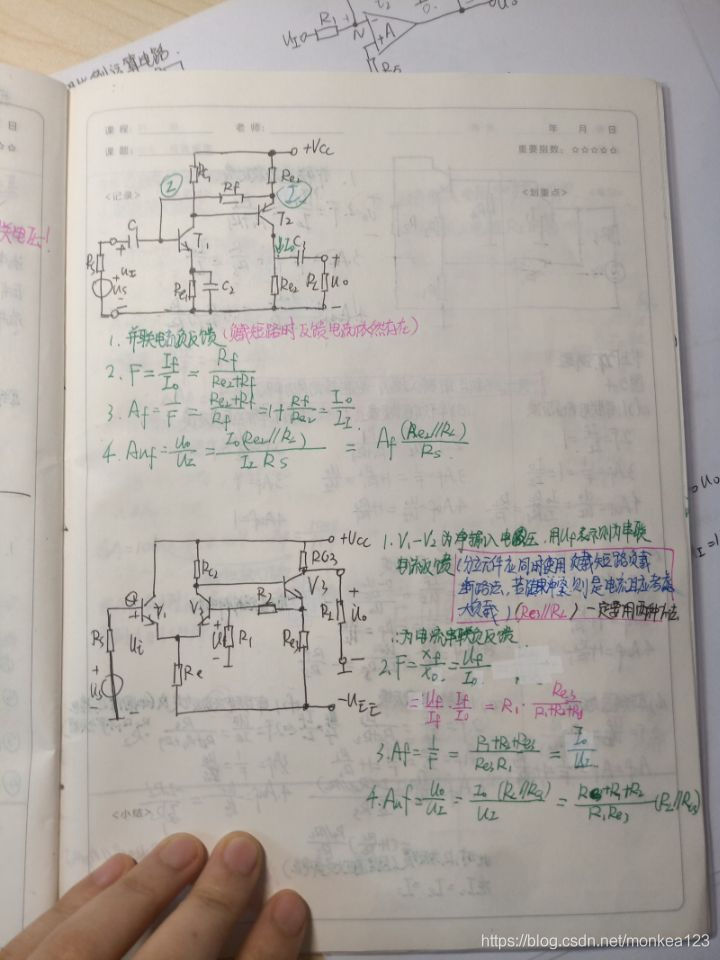 R1
UIO
N
+A
R5
运算电路
课程:
老师:
年 月 日
课题:
重要指数: ☆☆☆☆☆
<记录>
<划重点>
+Vcc
Rf
Re2
T2
T1
C1
Rs
Us
UI
Re1
C2
C3
Io
Re2
RL
Uo
1. 并联电流负反馈(负载短路时反馈电流依然存在)
2. F = If/Io = Rf/(Re2+Rf)
3. Af = 1/F = (Re2+Rf)/Rf = 1+Rf/Re2 = Io/II
4. Auf = Uo/UI = Io(Re2//RL)/(II Rs) = Af (Re2//RL)/Rs
+Vcc
Rc2
Rc3
V1
V2
V3
R2
Rs
Ui
Uf
R1
Re3
RL
Uo
Us
Re
-UEE
1. V1-V2为净输入电压, 用Uf表示则为串联
(分立元件应同时使用负载短路负载
断路法,
大负载) (Rc3//RL) 一定要用两种方法
为电流串联负反馈
2. F = Xf/Xo = Uf/Io
= Uf/If · If/Io = R1 · Re3/(R1+R2+Re3)
3. Af = 1/F = (R1+R2+Re3)/(Re3R1) = Io/UI
4. Auf = Uo/UI = Io(RL//Rc3)/UI = (Re3+R1+R2)/(R1Re3) (RL//Rc3)
<小结>
https://blog.csdn.net/monkea123